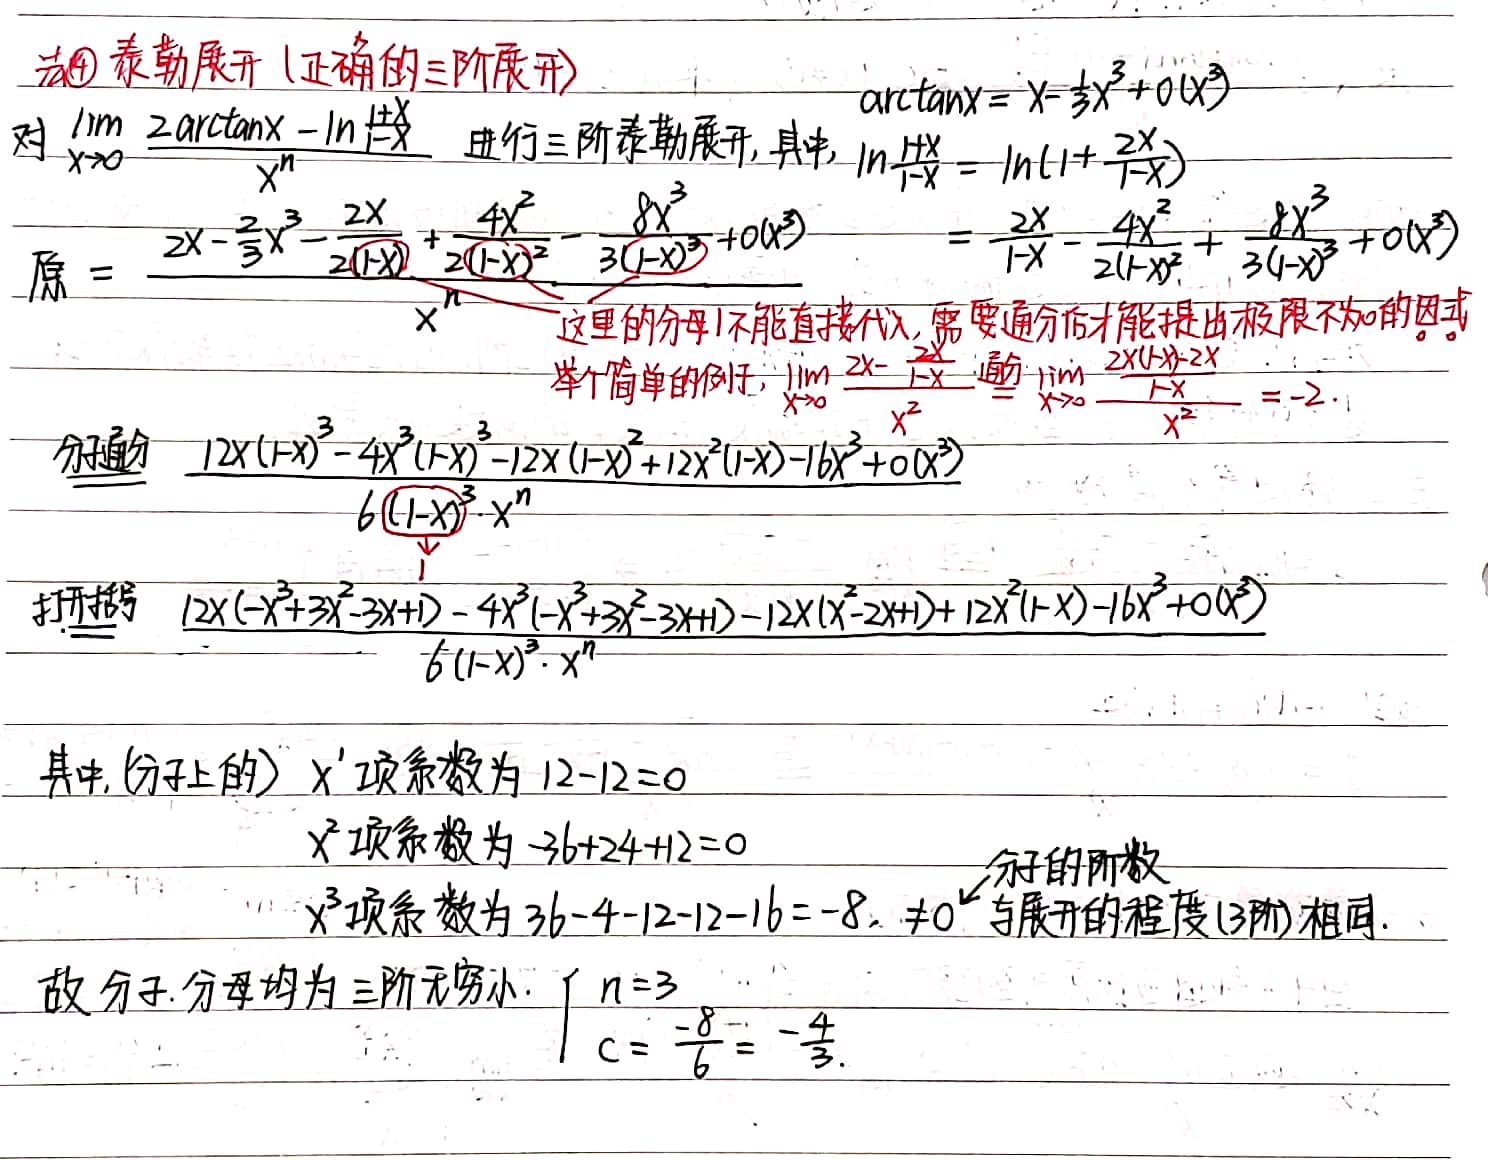 法④ 泰勒展开 (正确的三阶展开)
对 lim_{x→0} (2arctanx - ln((1+x)/(1-x)))/x^n 进行三阶泰勒展开, 其中, arctanx = x - (1/3)x^3 + o(x^3)
ln((1+x)/(1-x)) = ln(1 + 2x/(1-x))
= 2x/(1-x) - 4x^2/(2(1-x)^2) + 8x^3/(3(1-x)^3) + o(x^3)
原 = (2x - (2/3)x^3 - 2x/(2(1-x)) + 4x^2/(2(1-x)^2) - 8x^3/(3(1-x)^3) + o(x^3))/x^n
这里的分母1不能直接代入, 需要通分后才能提出极限不为0的因式
举个简单的例子, lim_{x→0} (2x - 2x/(1-x))/x^2 通分= lim_{x→0} ((2x(1-x)-2x)/(1-x))/x^2 = -2.
分子通分 = (12x(1-x)^3 - 4x^3(1-x)^3 - 12x(1-x)^2 + 12x^2(1-x) - 16x^3 + o(x^3))/(6(1-x)^3·x^n)
↓
1
打开括号 = (12x(-x^3+3x^2-3x+1) - 4x^3(-x^3+3x^2-3x+1) - 12x(x^2-2x+1) + 12x^2(1-x) - 16x^3 + o(x^3))/(6(1-x)^3·x^n)
其中, (分子上的) x^1项系数为 12-12=0
x^2项系数为 -36+24+12=0
x^3项系数为 36-4-12-12-16=-8. ≠0 ↙ 分子的阶数
与展开的程度(3阶)相同.
故分子.分母均为三阶无穷小. { n=3
c = -8/6 = -4/3.